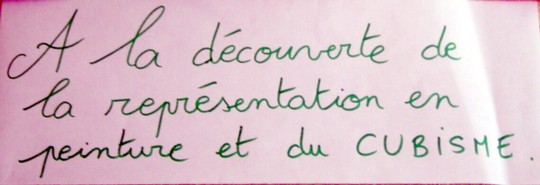 A la découverte de
la représentation en
peinture et du CUBiSME.